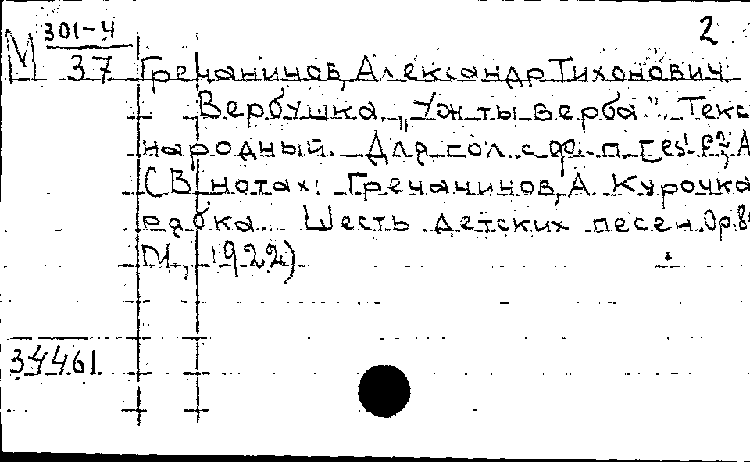 2
М 301-4
37
Гречанинов, Александр Тихонович
Вербушка „Уж ты верба". Текс
народный. Для гол. с ф. п. [es¹-
(В нотах: Гречанинов, А. Курочка
рябка. Шесть детских песен. Ор. 8
М., 1922)
34461